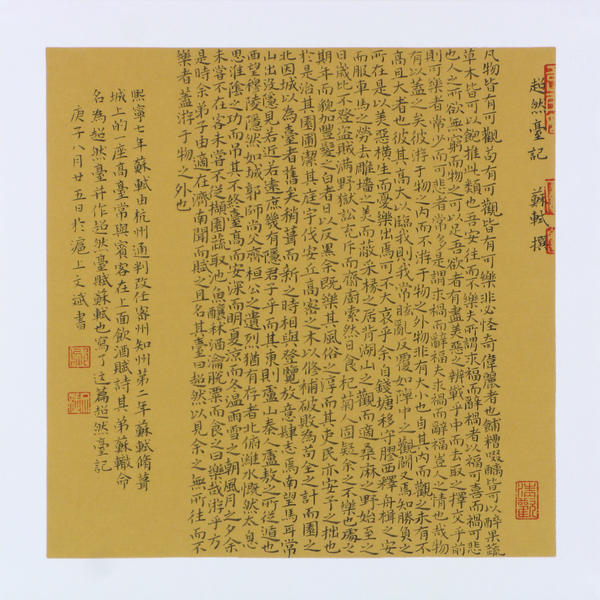 超然臺記 蘇軾 撰
凡物皆有可觀苟有可觀皆有可樂非必怪奇偉麗者也餔糟啜醨皆可以醉果蔬
草木皆可以飽推此類也吾安往而不樂夫所謂求福而辭禍者以福可喜而禍可悲
也人之所欲無窮而物之可以足吾欲者有盡美惡之辨戰乎中而去取之擇交乎前
則可樂者常少而可悲者常多是謂求禍而辭福夫求禍而辭福豈人之情也哉物
有以蓋之矣彼游于物之內而不游于物外物非有大小也自其內而觀之未有不
高且大者也彼其高大以臨我則我常眩亂反覆如隙中之觀鬪又焉知勝負之
所在是以美惡橫生而憂樂出焉可不大哀乎余自錢塘移守膠西釋舟楫之安
而服車馬之勞去雕墻之美而蔽采椽之居背湖山之觀而適桑麻之野始至之
日歲比不登盜賊滿野獄訟充斥而齋廚索然日食杞菊人固疑余之不樂也處之
期年而貌加豐髮之白者日以反黑余既樂其風俗之淳而其吏民亦安予之拙也
於是治其園圃潔其庭宇伐安丘高密之木以修補破敗為苟全之計而園之
北因城以為臺者舊矣稍葺而新之時相與登覽放意肆志焉南望馬耳常
山出沒隱見若近若遠庶幾有隱君子乎而其東則廬山秦人盧敖之所從遁也
西望穆陵隱然如城郭師尚父齊桓公之遺烈猶有存者北俯濰水慨然太息
思淮陰之功而吊其不終臺高而安深而明夏涼而冬溫雨雪之朝風月之夕余
未嘗不在客未嘗不從擷園蔬取池魚釀秫酒瀹脫粟而食之曰樂哉游乎方
是時余弟子由適在濟南聞而賦之且名其臺曰超然以見余之無所往而不
樂者蓋游于物之外也
熙寧七年蘇軾由杭州通判改任密州知州第二年蘇軾脩葺
城上的一座高臺常與賓客在上面飲酒賦詩其弟蘇轍命
名為超然臺并作超然臺賦蘇軾也寫了这篇超然臺記
庚子八月廿五日於滬上文斌書